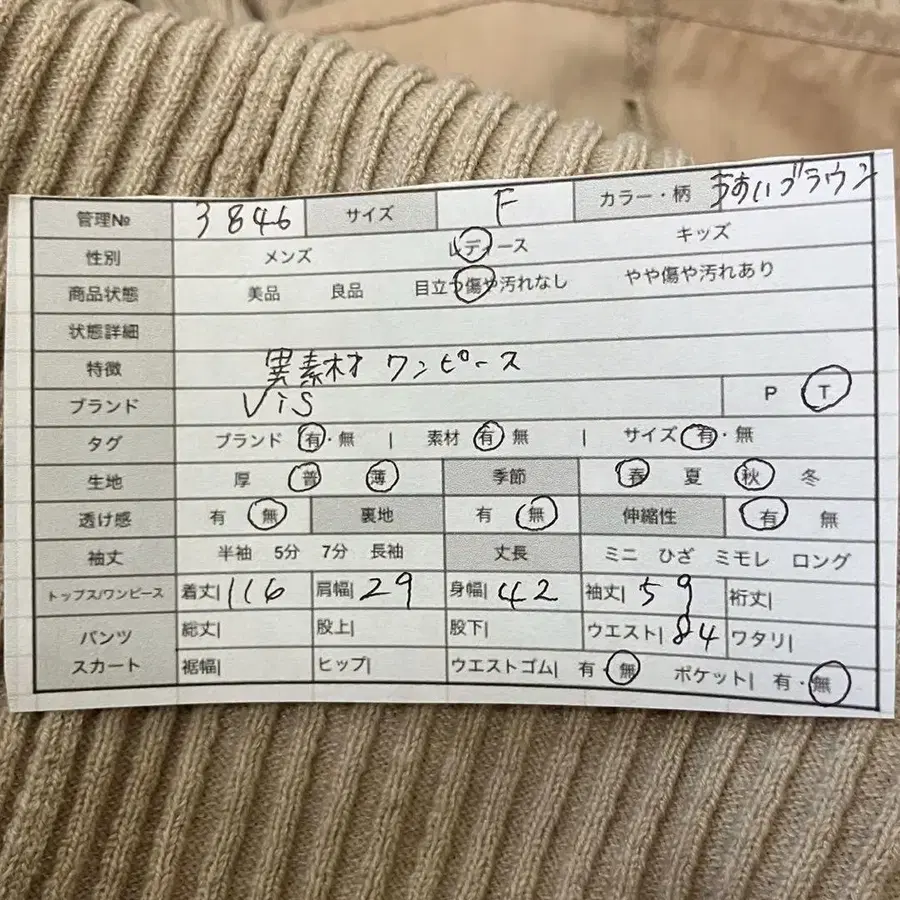 管理№ 3846 サイズ F カラー・柄 うすいブラウン
性別 メンズ レディース キッズ
商品状態 美品 良品 目立つ傷や汚れなし やや傷や汚れあり
状態詳細
特徴 異素材 ワンピース
ブランド ViS P T
タグ ブランド 有・無 | 素材 有 無 | サイズ 有・無
生地 厚 普 薄 季節 春 夏 秋 冬
透け感 有 無 裏地 有 無 伸縮性 有 無
袖丈 半袖 5分 7分 長袖 丈長 ミニ ひざ ミモレ ロング
トップス/ワンピース 着丈| 116 肩幅| 29 身幅| 42 袖丈| 59 裄丈|
パンツ スカート 総丈| 股上| 股下| ウエスト| 84 ワタリ|
裾幅| ヒップ| ウエストゴム| 有・無 ポケット| 有・無